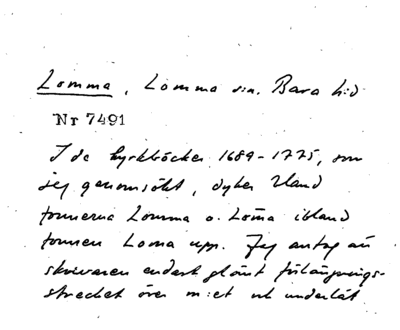 Lomma, Lomma sn. Bara hd
Nr 7491
I de kyrkböcker 1689-1775, som
jag genomsökt, dyker bland
formerna Lomma o. Lom̄a ibland
formen Loma upp. Jag antog att
skrivaren endast glömt förlängnings-
strecket över m:et och underlåt